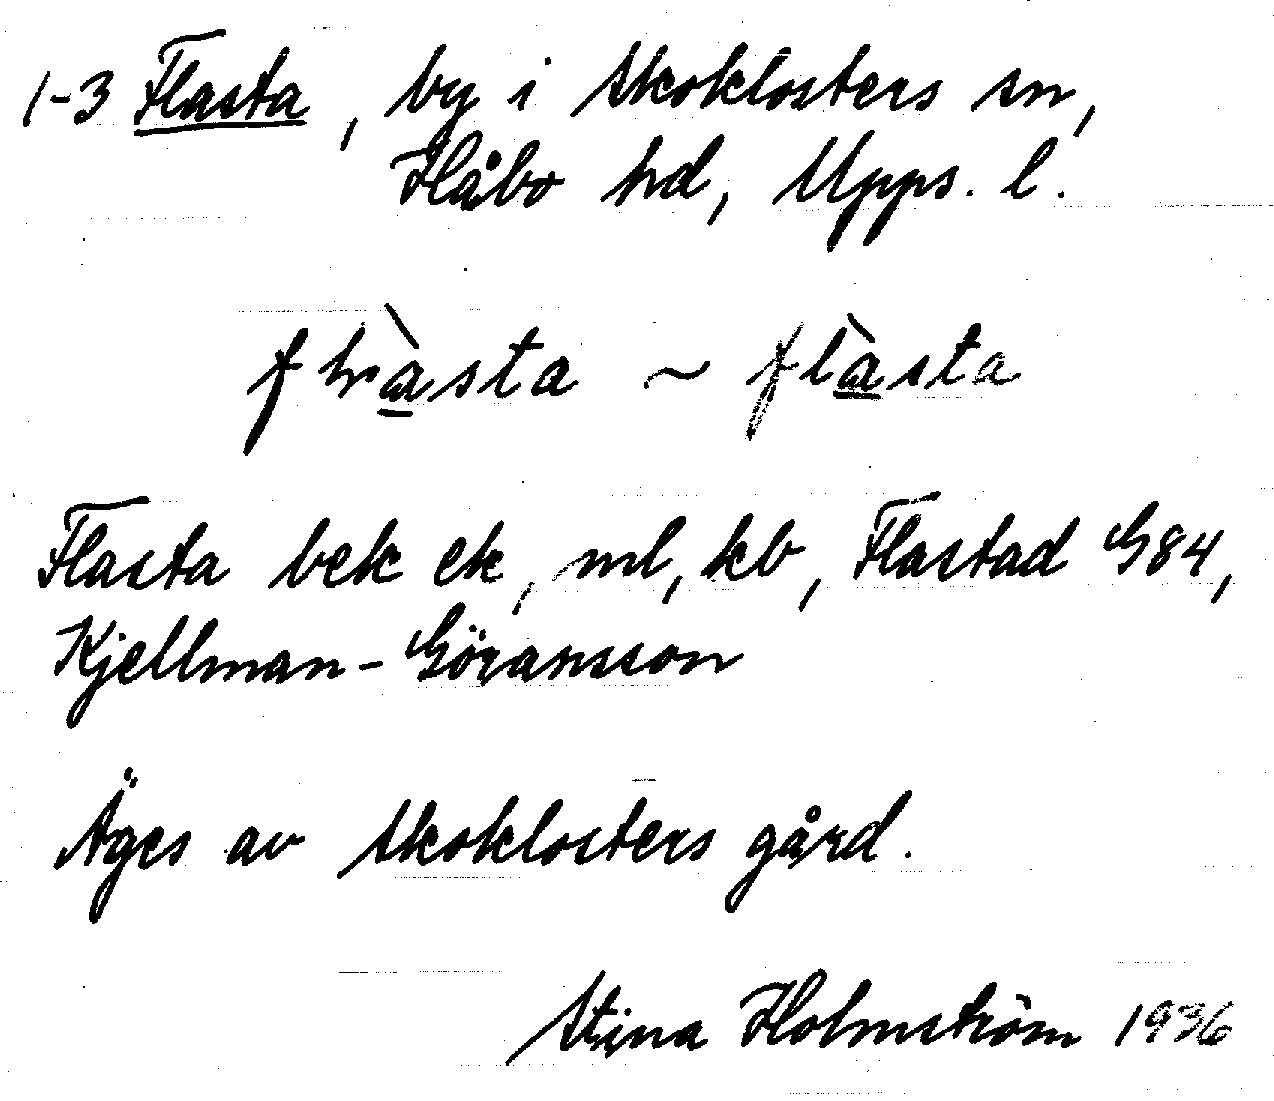 1-3 Flasta, by i Skoklosters sn,
Håbo hd, Upps. l.
fhràsta ~ flàsta
Flasta bek ek, ml, kb, Flastad G84,
Kjellman-Göransson
Äges av Skoklosters gård.
Stina Holmström 1936